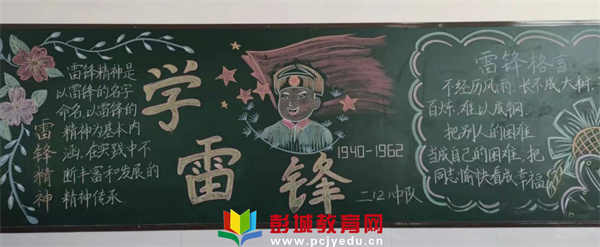 雷锋精神
雷锋精神是
以雷锋的名字
命名,以雷锋的
精神为基本内
涵,在实践中不
断丰富和发展的
精神传承
学
雷
锋
1940-1962
二(2)中队
雷锋格言
不经历风雨,长不成大树,
百炼,难以成钢
把别人的困难
当成自己的困难,把
同志愉快看成幸福
彭城教育网
www.pcjyedu.cn